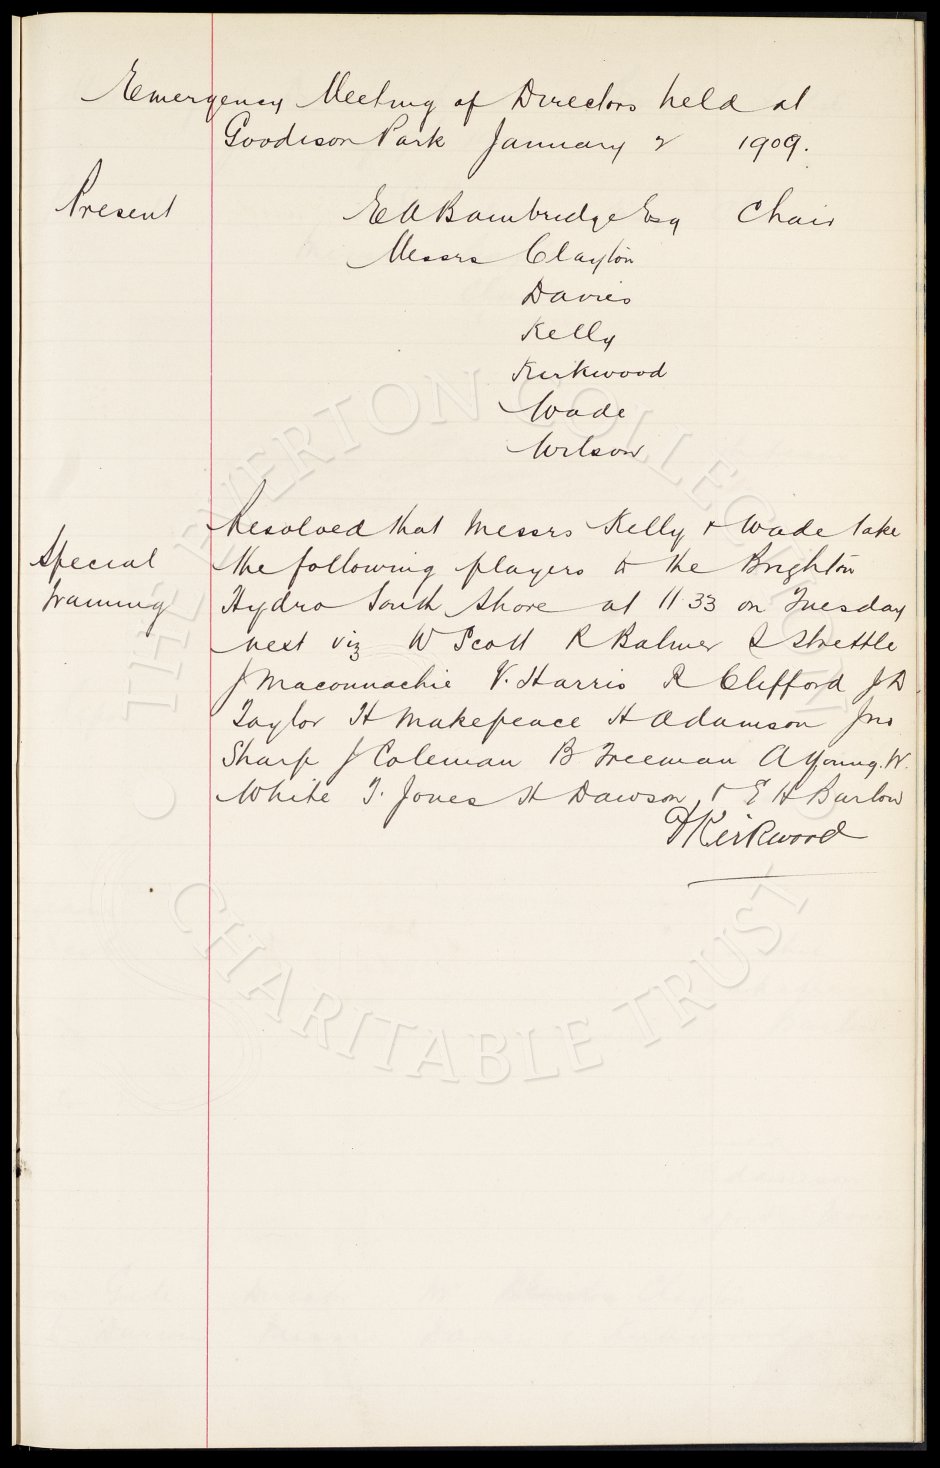 Emergency Meeting of Directors held at
Goodison Park January 2 1909.
Present E A Bainbridge Esq Chair
Messrs Clayton
Davies
Kelly
Kirkwood
Wade
Wilson
Resolved that Messrs Kelly & Wade take
Special the following players to the Brighton
training Hydro South Shore at 11.33 on Tuesday
next viz W Scott R Balmer S Strettle
J Maconnachie V. Harris R Clifford J D
Taylor H Makepeace H Adamson Jno
Sharp J Coleman B Freeman A Young. W.
White T. Jones H Dawson & E H Barlow
D Kirkwood
© THE EVERTON COLLECTION
CHARITABLE TRUST